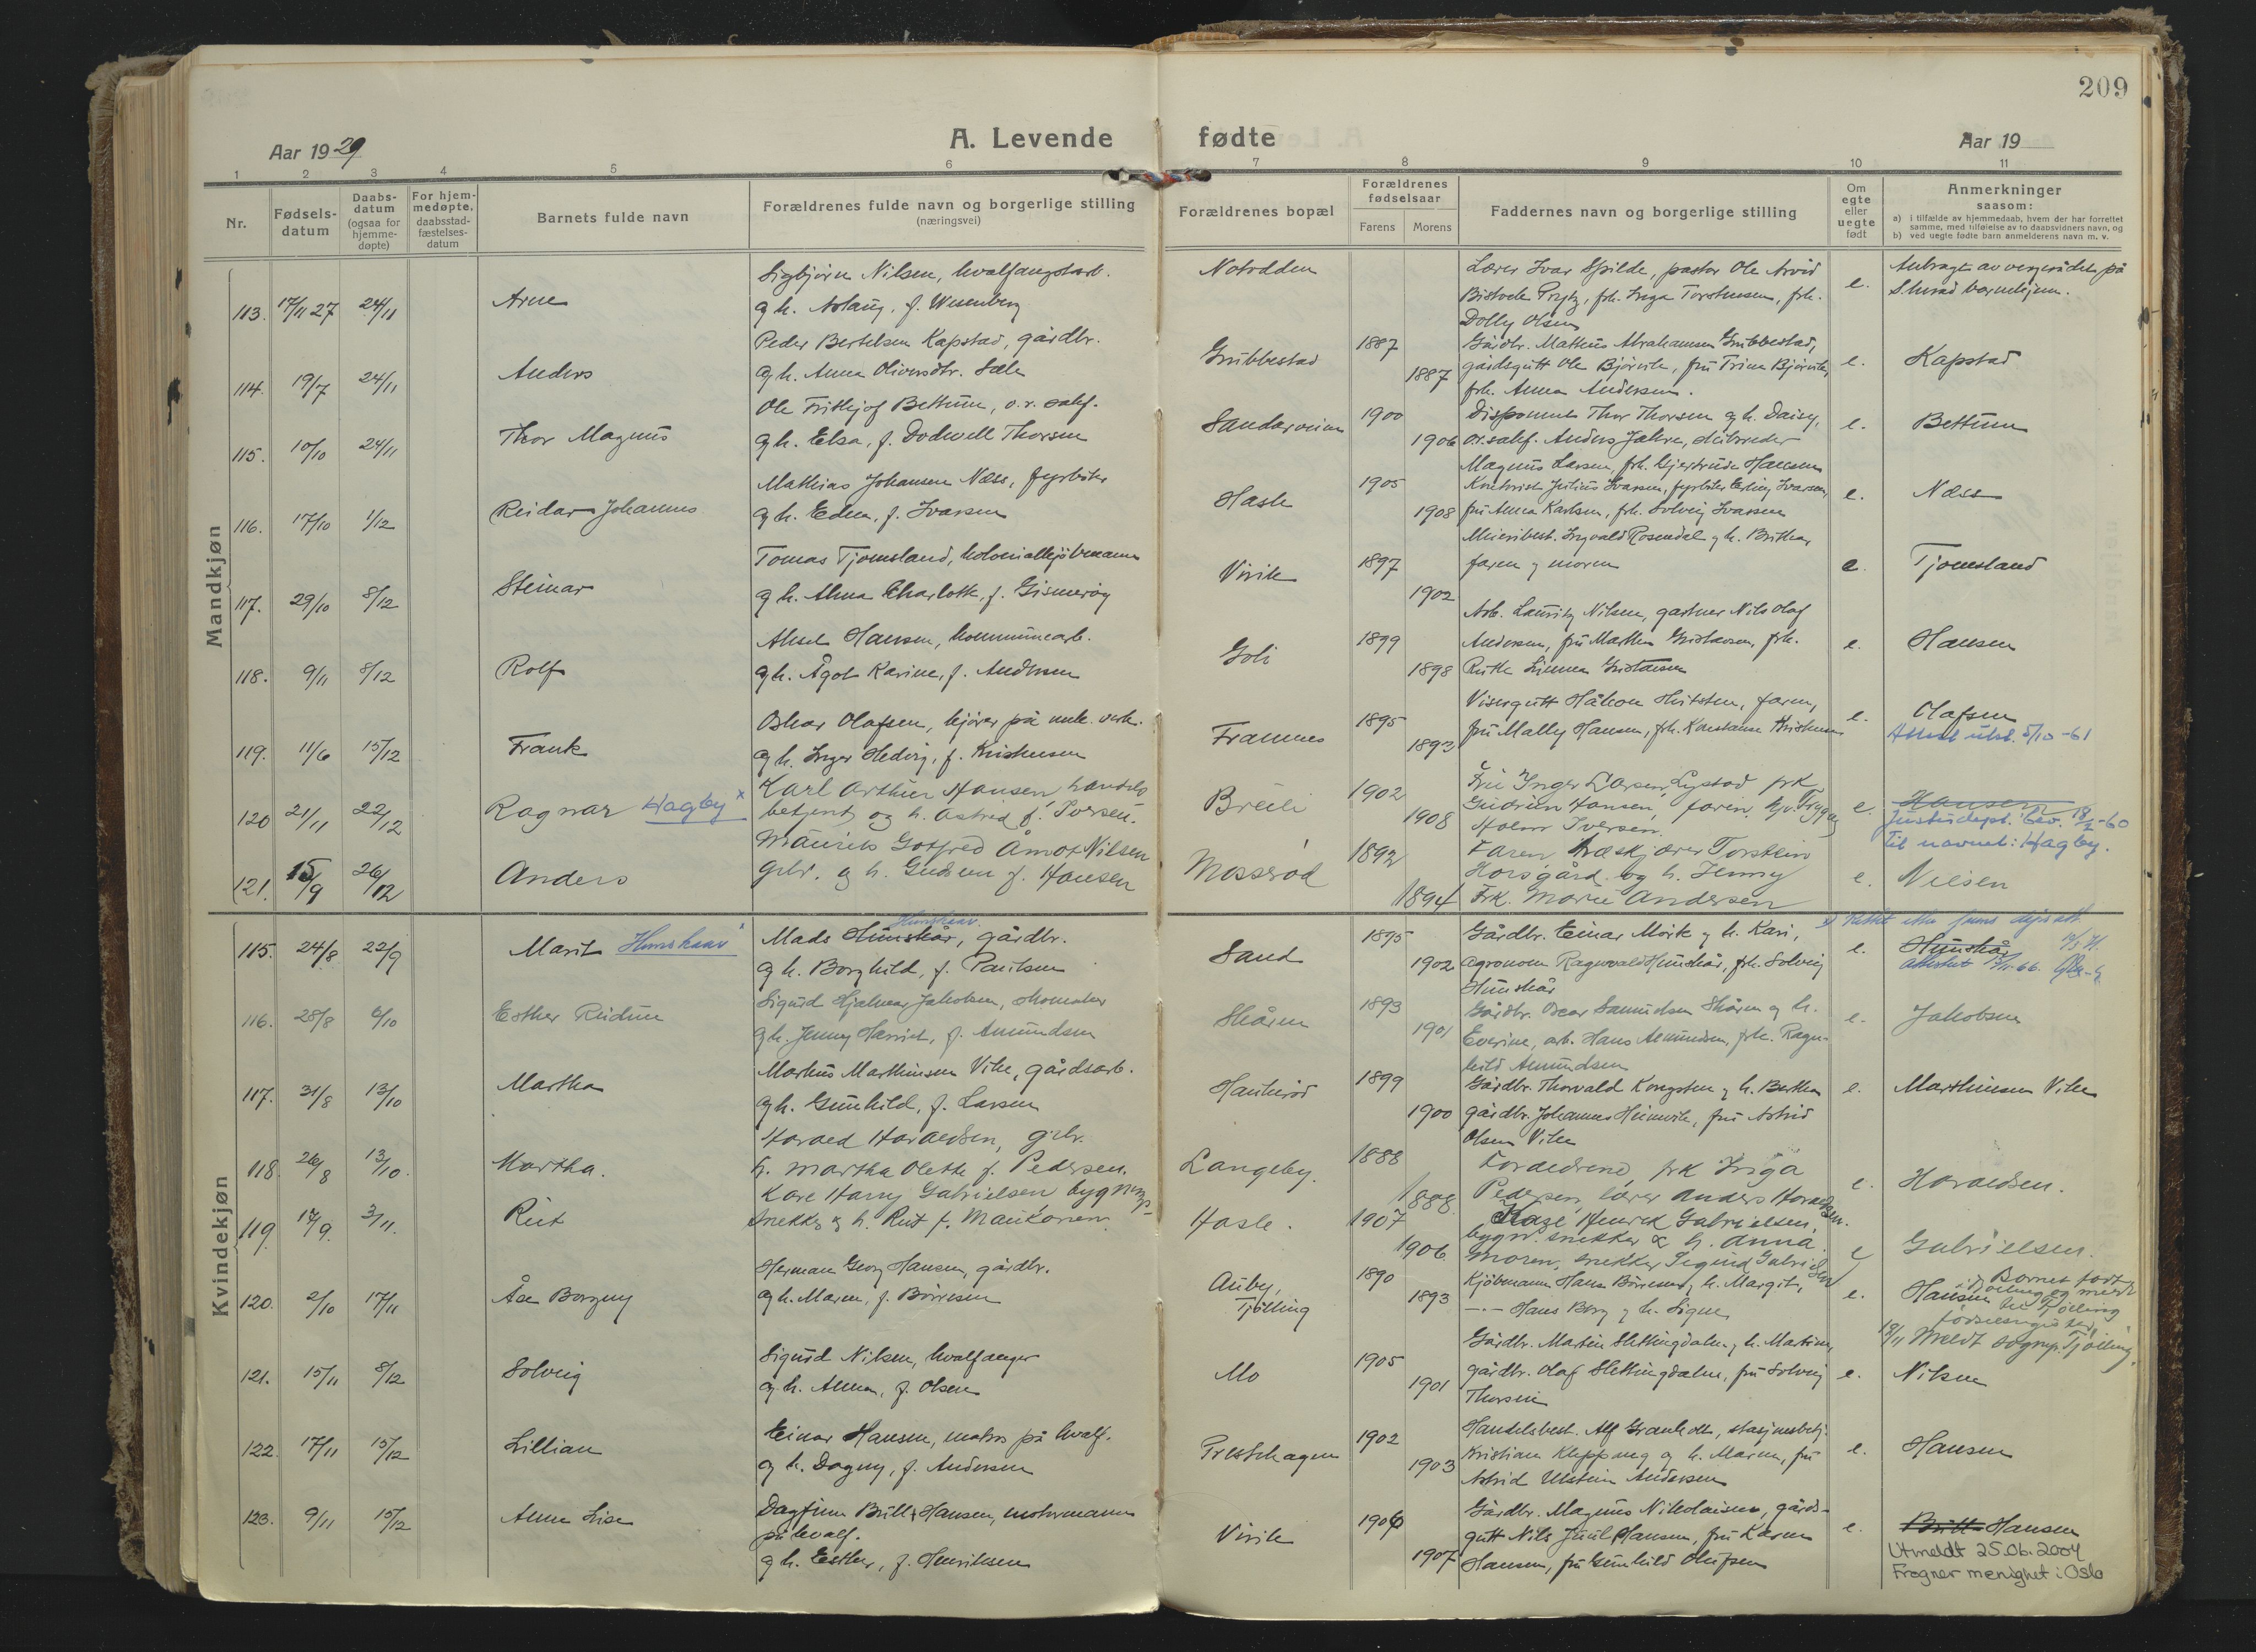 209
A. Levende fødte
Aar 1929
Aar 19
1 2 3 4 5 6 7 8 9 10 11
Nr.
Fødsels-datum
Daabs-datum (ogsaa for hjemme-døpte)
For hjem-medøpte, daabsstad-fæstelses-datum
Barnets fulde navn
Forældrenes fulde navn og borgerlige stilling (næringsvei)
Forældrenes bopæl
Forældrenes fødselsaar
Farens Morens
Faddernes navn og borgerlige stilling
Om egte eller uegte født
Anmerkninger saasom:
a) i tilfælde av hjemmedaab, hvem der har forrettet samme, med tilføielse av to daabsvidners navn, og
b) ved uegte fødte barn anmelderens navn m. v.
Mandkjøn
113. 17/11 27 24/11 Arne
Sigbjørn Nilsen, hvalfangstarb.
og h. Aslaug, f. Wesenberg
Notodden
Lærer Ivar Spilde, pastor Ole Arvid
Bistvek Prytz, frk. Inga Torstensen, frk.
Dolly Olsen
e.
114. 19/7 24/11 Anders
Peder Bertelsen Kapstad, gårdbr.
og h. Anna Oliversdtr. Sæle
Grubbestad 1887 1887
Gårdbr. Mathias Abrahamsen Grubbestad,
gårdsgutt Ole Bjørvik, fru Trine Bjørvik,
frk. Anna Andersen.
e. Kapstad
115. 10/10 24/11 Thor Magnus
Ole Fritkjof Bettum, o.r. sakf.
og h. Elsa, f. Dodwell Thorsen
Sandarveien 1900 1906
Disponent Thor Thorsen og h. Daisy,
o.r.sakf. Anders Jahre, skibsreder
Magnus Larsen, frk. Gjertrude Hansen
e. Bettum
116. 17/10 1/12 Reidar Johannes
Mathias Johansen Næss, fyrbøter
og h. Edna, f. Ivarsen
Hasle 1905 1908
Kontorist Julius Ivarsen, fyrbøter Erling Ivarsen,
fru Anna Karlsen, frk. Solveig Ivarsen
e. Næss
117. 29/10 8/12 Steinar
Tomas Tjomsland, kolonialkjøbmann
og h. Alma Charlotte, f. Gismerøy
Virik 1897 1902
Meieribest. Ingvald Rosendal og h. Birthe,
faren og moren
e. Tjomsland
118. 9/11 8/12 Rolf
Aksel Hansen, kommunearb.
og h. Ågot Karine, f. Andersen
Goli 1899 1898
Arb. Lauritz Nilsen, gartner Nils Olaf
Andersen, fru Marthe Gustavsen, frk.
Ruth Linnea Gustavsen
e. Hansen
119. 11/6 15/12 Frank
Oskar Olafsen, kjører på mek. verk.
og h. Inger Hedvig, f. Kristensen
Framnes 1895 1893
Visergutt Håkon Huitsten, faren,
fru Mally Hansen, frk. Konstanse Kristensen
e. Olafsen
Attest utst. 5/10-61
120 21/11 22/12 Ragnar Hagby x
Karl Arthur Hansen, handels
betjent og h. Astrid f. Iversen.
Breili 1902 1908
Fru Inger Larsen Lystad frk
Gudrun Hansen, faren, Gv. Trygve
Holm Iversen.
e. Hansen
Justisdept. bev. 18/2-60
til navnet: Hagby.
121. 15/9 26/12 Anders
Mauritz Gotfred Åmot Nilsen
grbr. og h. Gudrun f. Hansen
Mosserød 1892 1894
Faren, hvalskjærer Torstein
Horsgård og h. Jenny
Frk. Marie Andersen
e. Nilsen
Kvindekjøn
115. 24/8 22/9 Marit Hunskaar x
Hunskaar
Mads Hunskår, gårdbr.
og h. Borghild, f. Paulsen
Sand 1895 1902
Gårdbr. Einar Mørk og h. Kari,
agronom Ragnvald Hunskår, frk. Solveig
Hunskår
e. Hunskår
116. 28/8 6/10 Esther Reidun
Sigurd Hjalmar Jakobsen, skomaker
og h. Jenny Harriet, f. Amundsen
Skåren 1893 1901
Gårdbr. Oscar Samuelsen Skåren og h.
Everine, arb. Hans Amundsen, frk. Ragn-
hild Amundsen
e. Jakobsen
117. 31/8 13/10 Martha
Markus Marthinsen Vike, gårdsarb.
og h. Gunhild, f. Larsen
Haukerød 1899 1900
Gårdbr. Thorvald Kongsten og h. Bertha
gårdbr. Johannes Heimvik, fru Astrid
Olsen Viken
e. Marthinsen Vike
118. 26/8 13/10. Martha.
Harald Haraldsen, grbr.
h. Martha Olette f. Pedersen.
Langeby. 1888 1888
Forældrene, frk Inga
Pedersen, lærer Anders Haraldsen.
e. Haraldsen.
119. 17/9. 3/11. Rut
Kåre Harry Gabrielsen bygnings
snekker & h. Rut f. Maukonen.
Hasle. 1907 1906
Kage Henrik Gabrielsen,
bygn. snekker & h. Anna.
moren, snekker Sigurd Gabrielsen
e Gabrielsen.
120. 2/10 17/11 Åse Borgny
Herman Georg Hansen, gårdbr.
og h. Maren, f. Børresen
Auby, Tjølling 1890 1893
Kjøbmann Hans Børresen og h. Margit,
-·- Hans Berg og h. Signe
e. Hansen
Barnet født
i Tjølling og meldt
til Tjølling
fødselsregister.
18/11 Meldt sognepr. Tjølling.
121. 15/11 8/12 Solveig
Sigurd Nilsen, hvalfanger
og h. Anna, f. Olsen
Mo 1905 1901
Gårdbr. Martin Slettingdalen og h. Martine,
gårdbr. Olaf Slettingdalen, fru Solveig
Thorsen
e. Nilsen
122. 17/11 15/12 Lillian
Einar Hansen, matros på hvalf.
og h. Dagny, f. Andersen
Prestehagen 1902 1903
Handelsbest. Alf Granholt, stasjonsbetj.
Kristian Kleppaneg og h. Maren, fru
Astrid Ulstein Andersen
e. Hansen
123. 9/11 15/12 Anne Lise
Dagfinn Brill Hansen, motormann
på hvalf.
og h. Esther, f. Henriksen
Virik 1906 1907
Gårdbr. Magnus Nikolaisen, gårds-
gutt Nils Juul Hansen, fru Karen
Hansen, fru Gunhild Olufsen
e. Hansen
Utmeldt 25.06.2004
Frogner menighet i Oslo